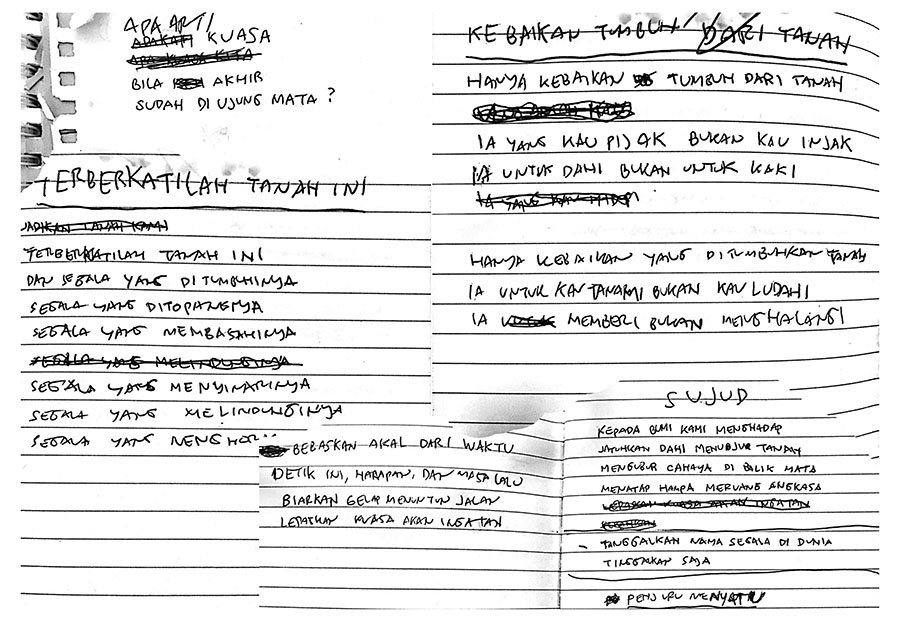 APA ARTI
APAKAH KUASA
APA KUASA KITA
BILA AKHIR
SUDAH DI UJUNG MATA?
TERBERKATILAH TANAH INI
JADIKAN TANAH KAMI
TERBERKATILAH TANAH INI
DAN SEGALA YANG DITUMBUHINYA
SEGALA YANG DITOPANGNYA
SEGALA YANG MEMBASAHINYA
SEGALA YANG MELINDUNGINYA
SEGALA YANG MENYINARINYA
SEGALA YANG MELINDUNGINYA
SEGALA YANG
KEBAIKAN TUMBUH DARI TANAH
HANYA KEBAIKAN TUMBUH DARI TANAH
IA YANG KAU PIJAK BUKAN KAU INJAK
IA UNTUK DAHI BUKAN UNTUK KAKI
IA YANG KAU
HANYA KEBAIKAN YANG DITUMBUHKAN TANAH
IA UNTUK KAU TANAMI BUKAN KAU LUDAHI
IA MEMBERI BUKAN MENGHALANGI
BEBASKAN AKAL DARI WAKTU
DETIK INI, HARAPAN, DAN MASA LALU
BIARKAN GELAP MENUNTUN JALAN
LEPASKAN KUASA AKAN INGATAN
SUJUD
KEPADA BUMI KAMI MENGHADAP
JATUHKAN DAHI MENUJUR TANAH
MENGUBUR CAHAYA DI BALIK MATA
MENATAP HAMPA MERUANG ANGKASA
LEPASKAN KUASA AKAN INGATAN
TANGGALKAN NAMA SEGALA DI DUNIA
TINGGALKAN SAJA
PENJURU MENYATU